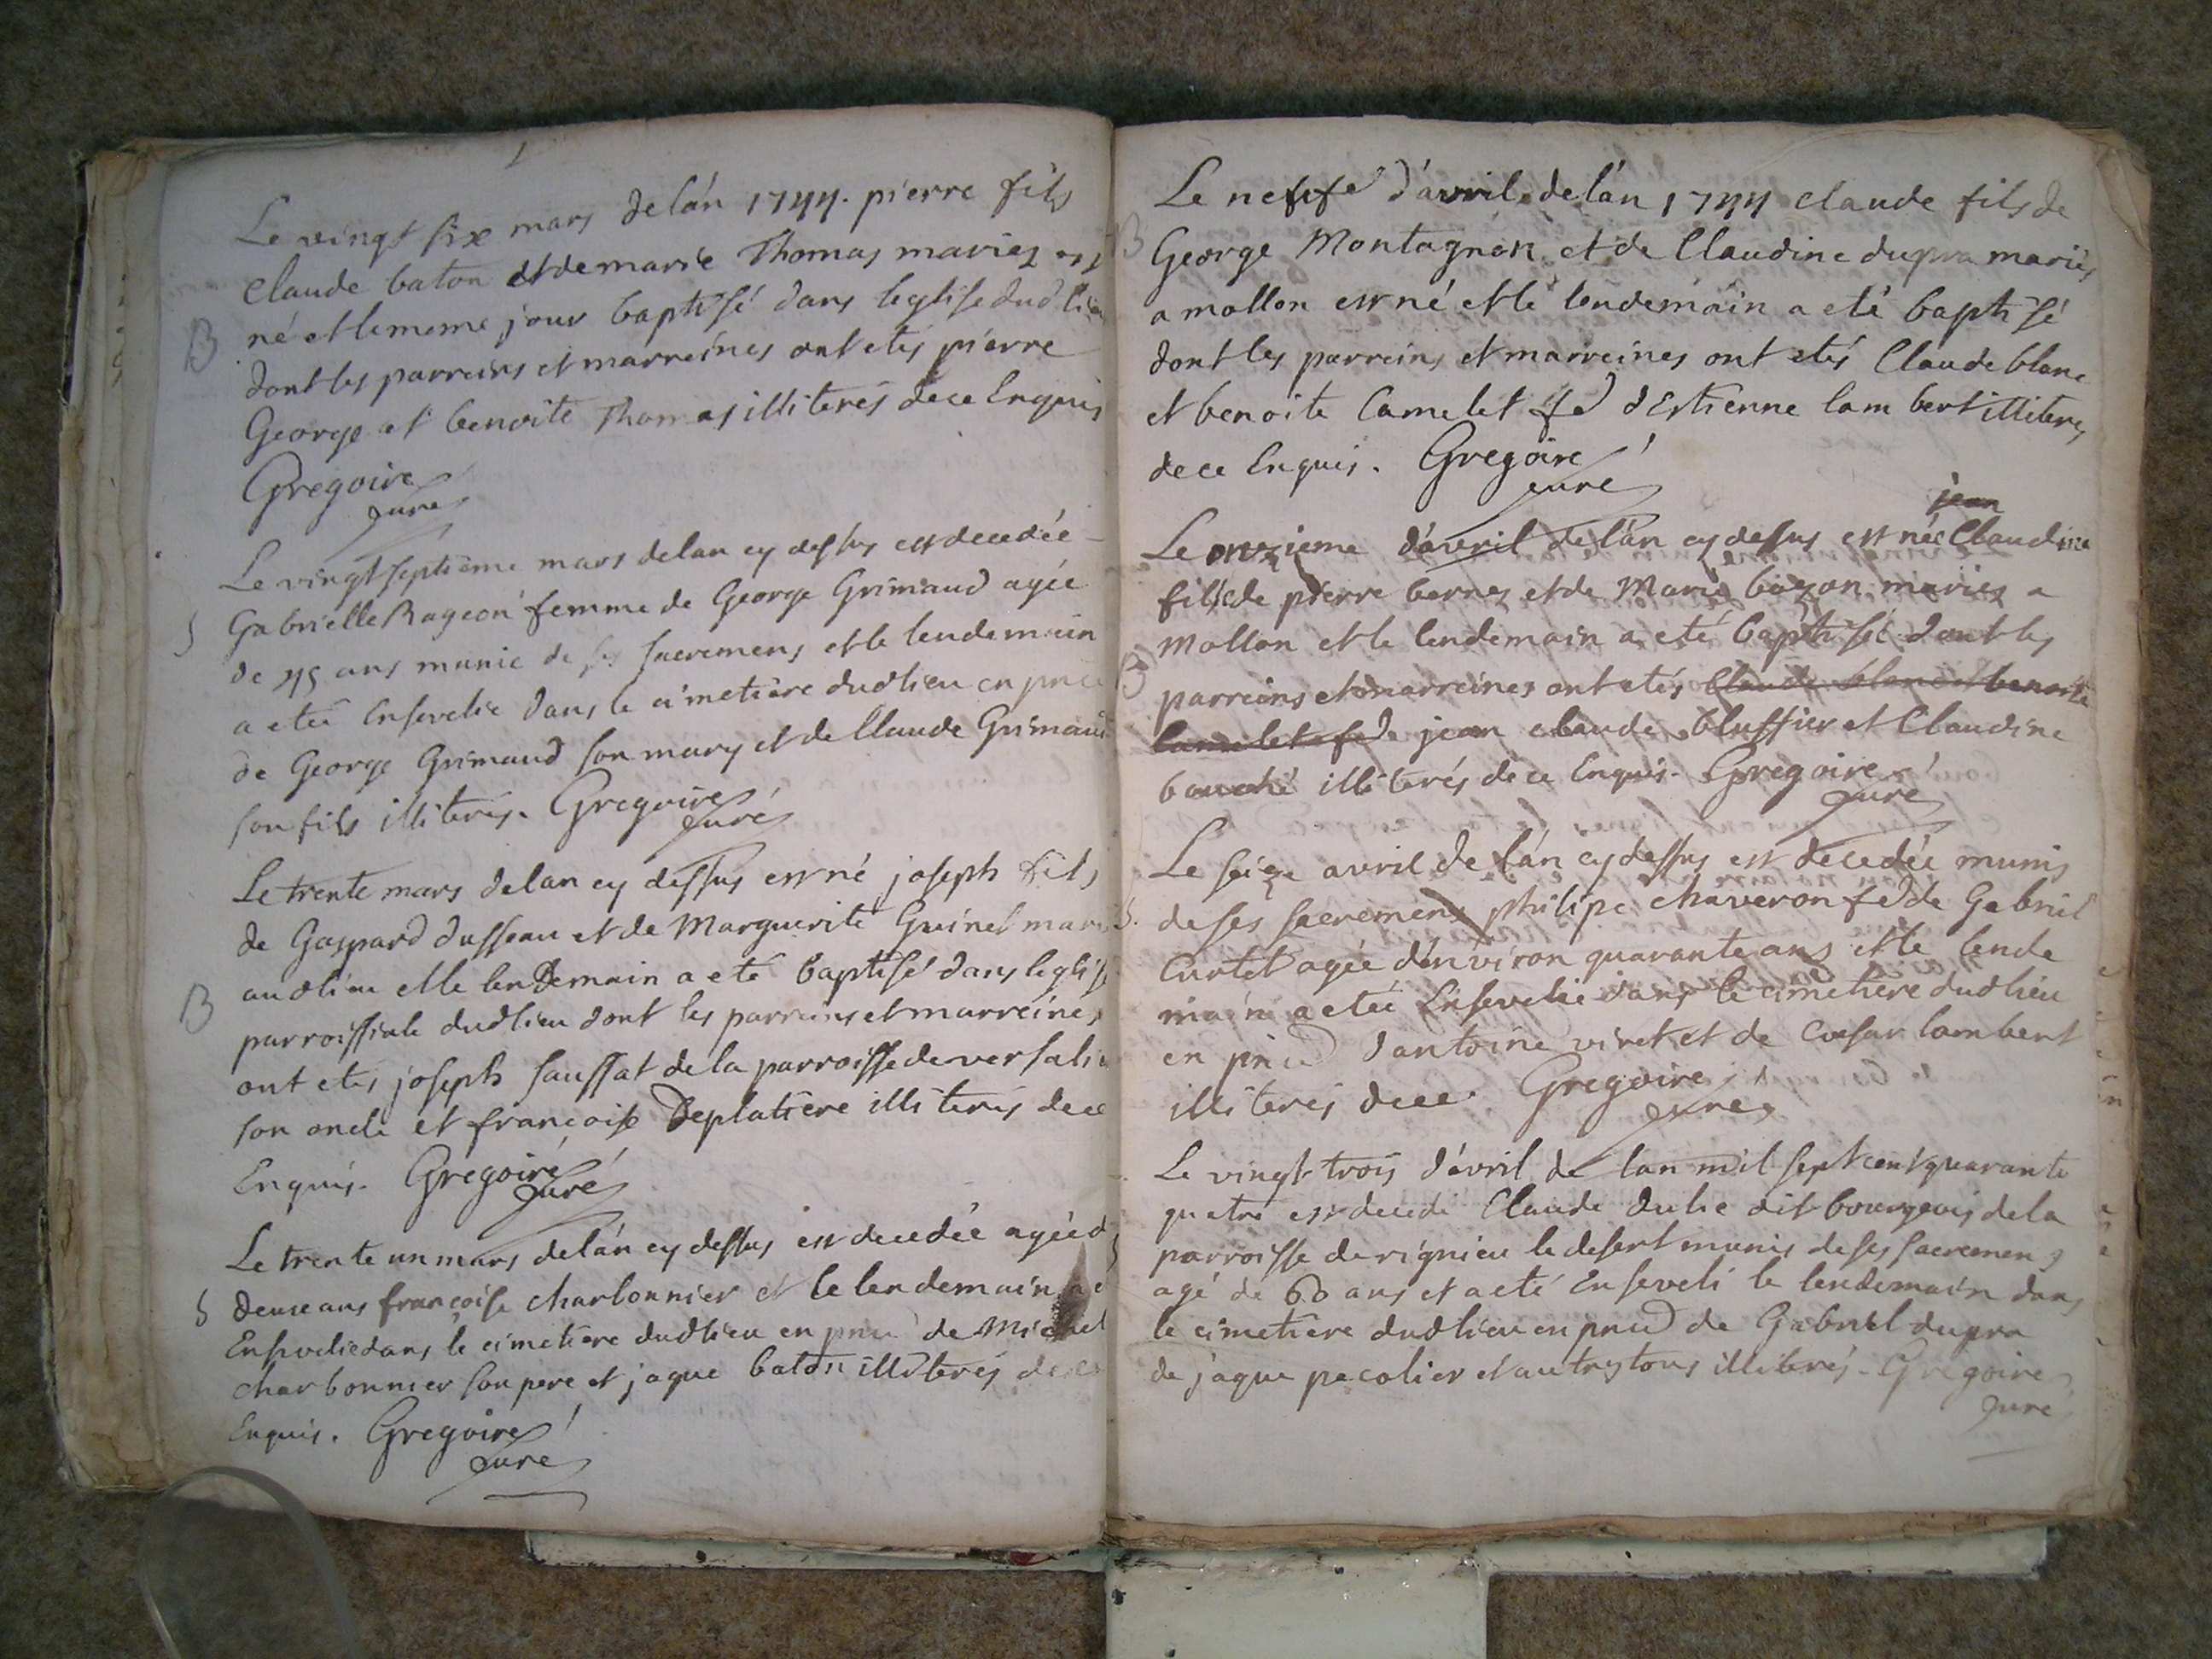 Le vingt six mars de lán 1744. pierre fils
claude baton et de marie Thomas mariez est
né et le meme jour baptisé dans leglise dud lieu
B
dont les parreins et marreines ont etés piérre
George et benoite Thomas illiterés de ce Enquis
Gregoire
Curé
Le vingt septieme mars de lan cy dessus est decedée
Gabrielle Rageon femme de George Grimaud agée
S
de 45 ans munie de ses sacremens et le lendemain
a etée Ensevelie dans le cimetiere dudlieu en pnce
de George Grimaud son mary et de Claude Grimaud
son fils illiterés. Gregoire
Curé
Le trente mars de lan cy dessus est né joseph fils
de Gaspard dusseau et de Marguerite Guinet mariés
audlieu et le lendemain a eté baptisé dans leglise
B
parroissiale dudlieu dont les parreins et marreines
ont etés joseph saussat de la parroisse de versalieu
son oncle et françoise Deplatiere illiterés de ce
Enquis. Gregoire
Curé
Le trente un mars de lán cy dessus est decedée agée de
S
deux ans françoise charbonnier et le lendemain a eté
Ensevelie dans le cimetiere dudlieu en pnce de Michel
charbonnier son pere et jaque baton illiterés de ce
Enquis. Gregoire
Curé
Le neufe d'avril de lán 1744 claude fils de
B
George Montagnon et de Claudine dupra mariés
a mollon est né et le lendemain a eté baptisé
dont les parreins et marreines ont etés Claude blanc
et benoite Camelet fe d'Estienne lambert illiteres
de ce Enquis. Gregoire
Curé
jean
Le onzieme d'avril de lán cy dessus est née Claudine
fille de pierre bernes et de Marie bozon mariez a
Mollon et le lendemain a eté baptisé dont les
B
parreins et marreines ont etés Claude blanc et benoite
Camelet fe de jean claude bluffier et Claudine
bouché illiterés de ce Enquis. Gregoire
Curé
Le seize avril de lán cy dessus est decedée munis
S.
de ses sacremens philipe chaveron fe de Gabriel
Curtet agée dénviron quarante ans et le lende
main a etée Ensevelie dans le cimetiere dudlieu
en pnce d'antoine viret et de Cæsar lambert
illiterés de ce. Gregoire
Curé
Le vingt trois d'avril de lan mil sept cent quarante
quatre est decedé Claude dulie dit bourgeois de la
parroisse de rignieu le desert munis de ses sacremens
agé de 60 ans et a eté Enseveli le lendemain dans
le cimetiere dudlieu en pnce de Gabriel dupra
de jaque pecolier et autres tous illiterés. Gregoire
Curé